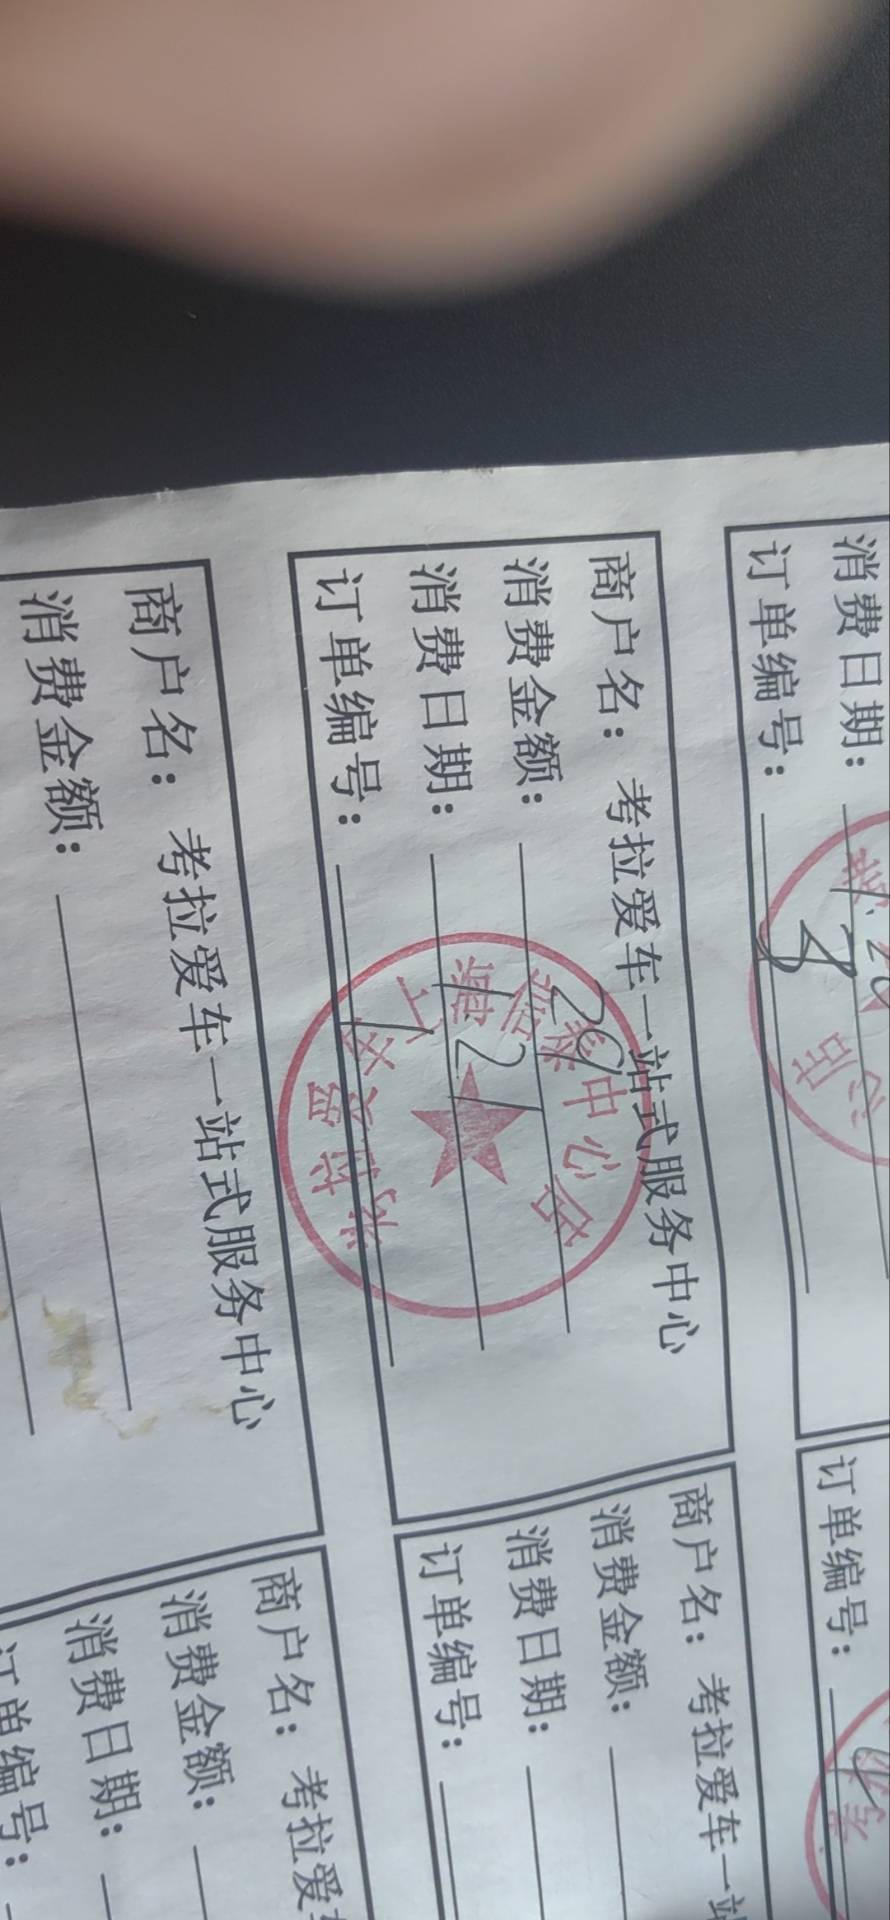 消费日期：1.20
订单编号：8
商户名：考拉爱车一站式服务中心
消费金额：29
消费日期：1.21
订单编号：1
商户名：考拉爱车一站式服务中心
消费金额：
订单编号：
商户名：考拉爱车一站
消费金额：
消费日期：
订单编号：
商户名：考拉爱车
消费金额：
消费日期：
订单编号：